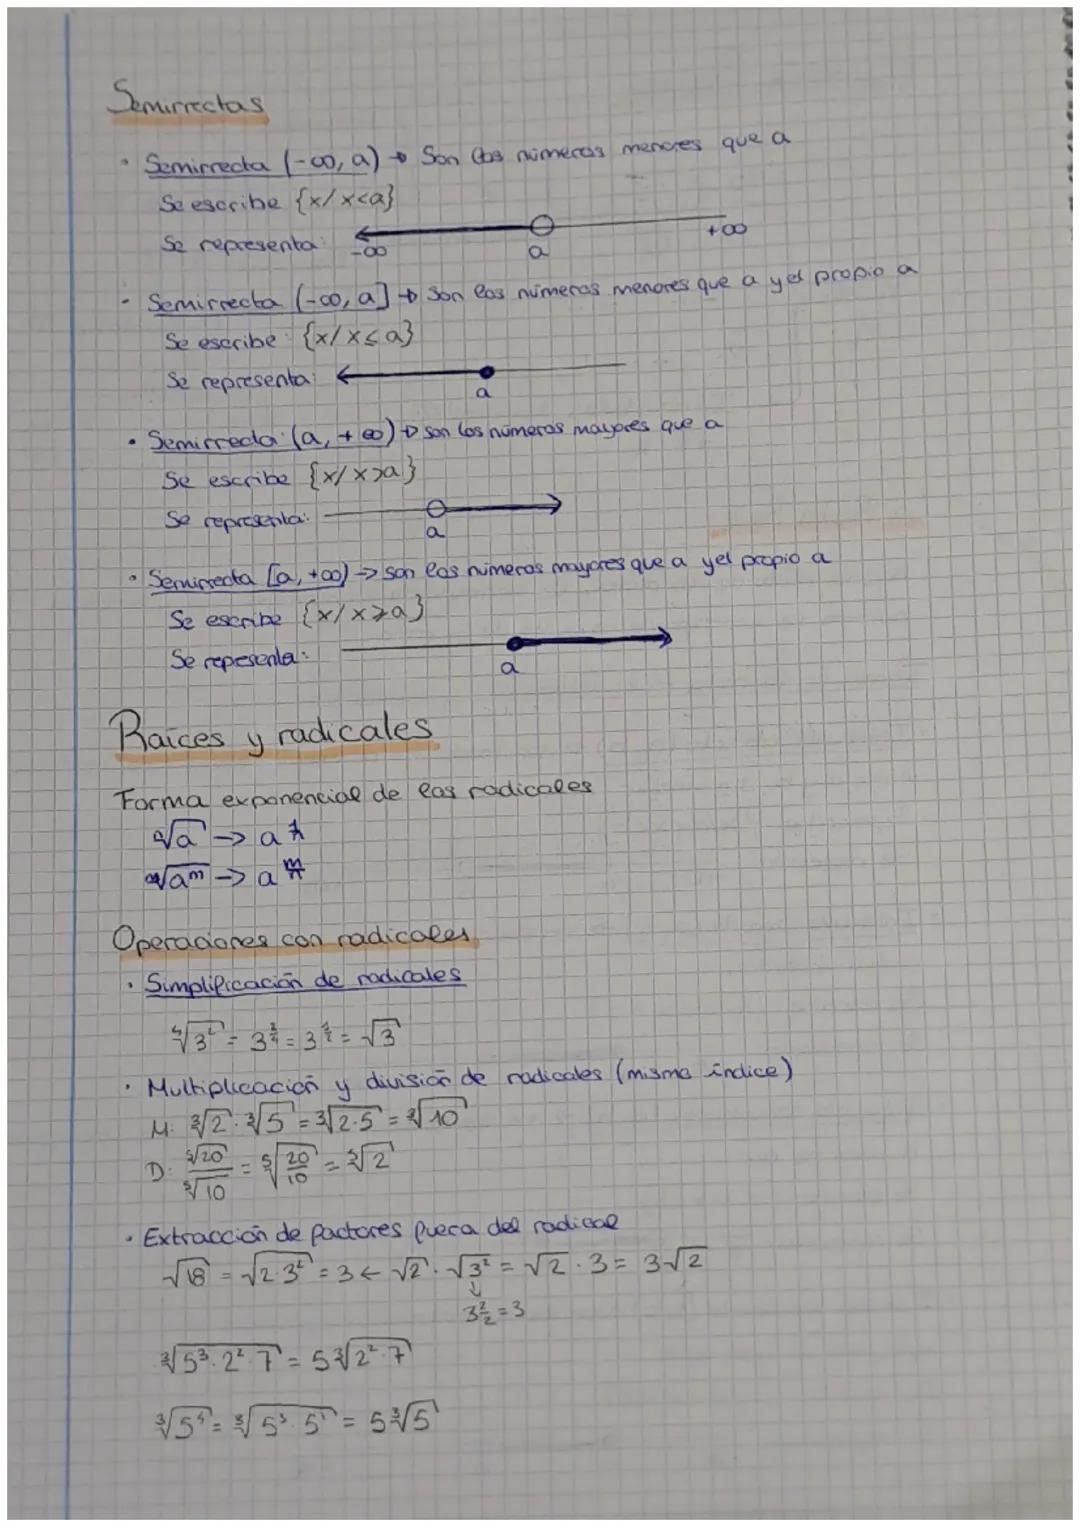 Semirrectas
· Semirrecta (-∞, a) → Son los números menores que a
Se escribe {x/ x<a}
Se representa: -∞ a +∞
· Semirrecta (-∞, a] → Son los números menores que a y el propio a
Se escribe: {x/ x≤a}
Se representa: a
· Semirrecta: (a, +∞) → son los números mayores que a
Se escribe {x/ x>a}
Se representa: a
· Semirrecta [a, +∞) → son los números mayores que a y el propio a
Se escribe {x/ x≥a}
Se representa: a
Raíces y radicales
Forma exponencial de los radicales
ⁿ√a → a^(1/n)
ⁿ√a^m → a^(m/n)
Operaciones con radicales
· Simplificación de radicales
⁴√3² = 3^(2/4) = 3^(1/2) = √3
· Multiplicación y división de radicales (mismo índice)
M: ³√2 · ³√5 = ³√2·5 = ³√10
D: ⁵√20 / ⁵√10 = ⁵√(20/10) = ⁵√2
· Extracción de factores fuera del radical
√18 = √2·3² = 3 ← √2 · √3² = √2 · 3 = 3√2
↓
3^(2/2) = 3
³√5³·2²·7 = 5 ³√2²·7
³√5⁴ = ³√5³·5¹ = 5 ³√5